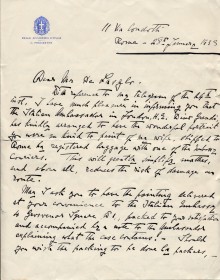 11 Via Condotti
Rome - 25th January 1929
Dear Mr de László,
With reference to my telegram of the 24th
inst, I have much pleasure in informing you that
the Italian Ambassador in London, H.E. Dino Grandi,
has kindly arranged to have the wonderful portrait
you were so kind to paint of my wife, shipped to
Rome by registered baggage with one of the Embassy
Couriers. This will greatly simplify matters,
and above all, reduces the risk of damage en
route!
May I ask you to have the painting delivered
at your convenience to the Italian Embassy
Grosvenor Square W1, packed to your satisfaction
and accompanied by a note to the Ambassador
explaining what the case contains. - Should
you wish the packing to be done by packers,